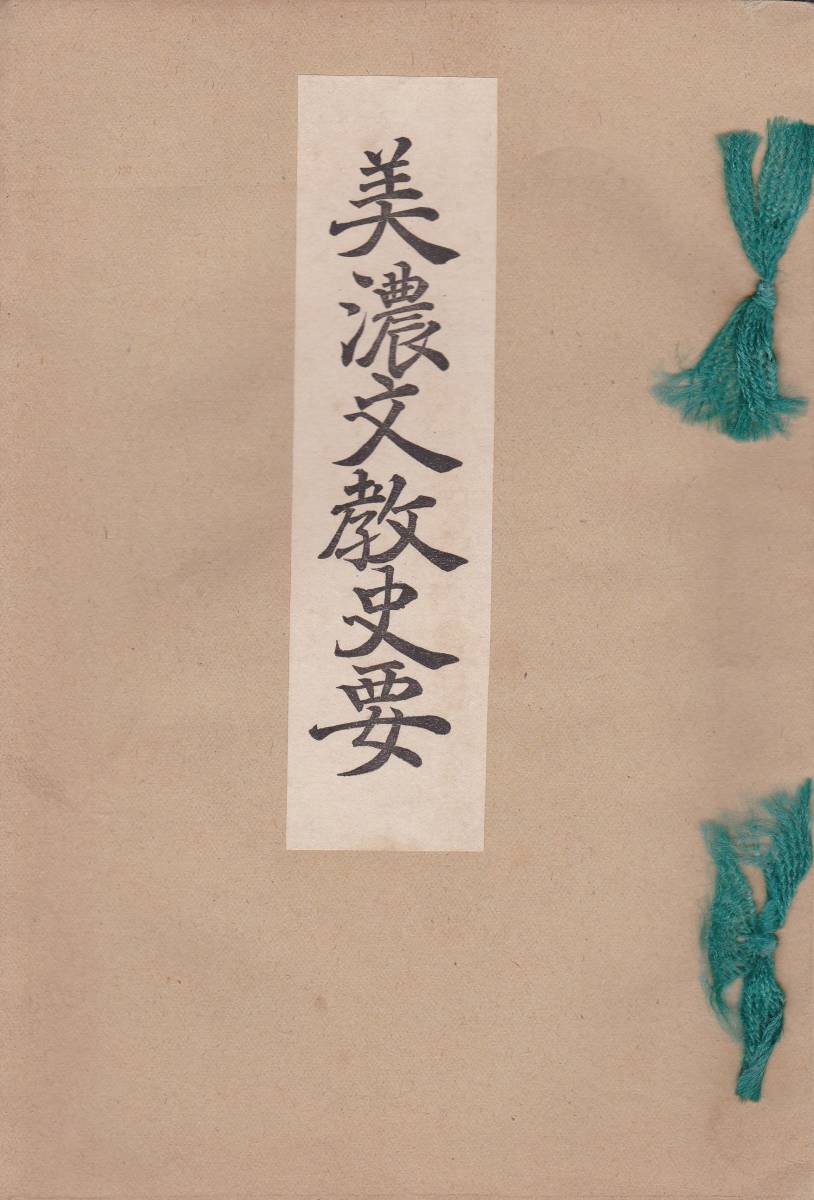 美濃文教史要